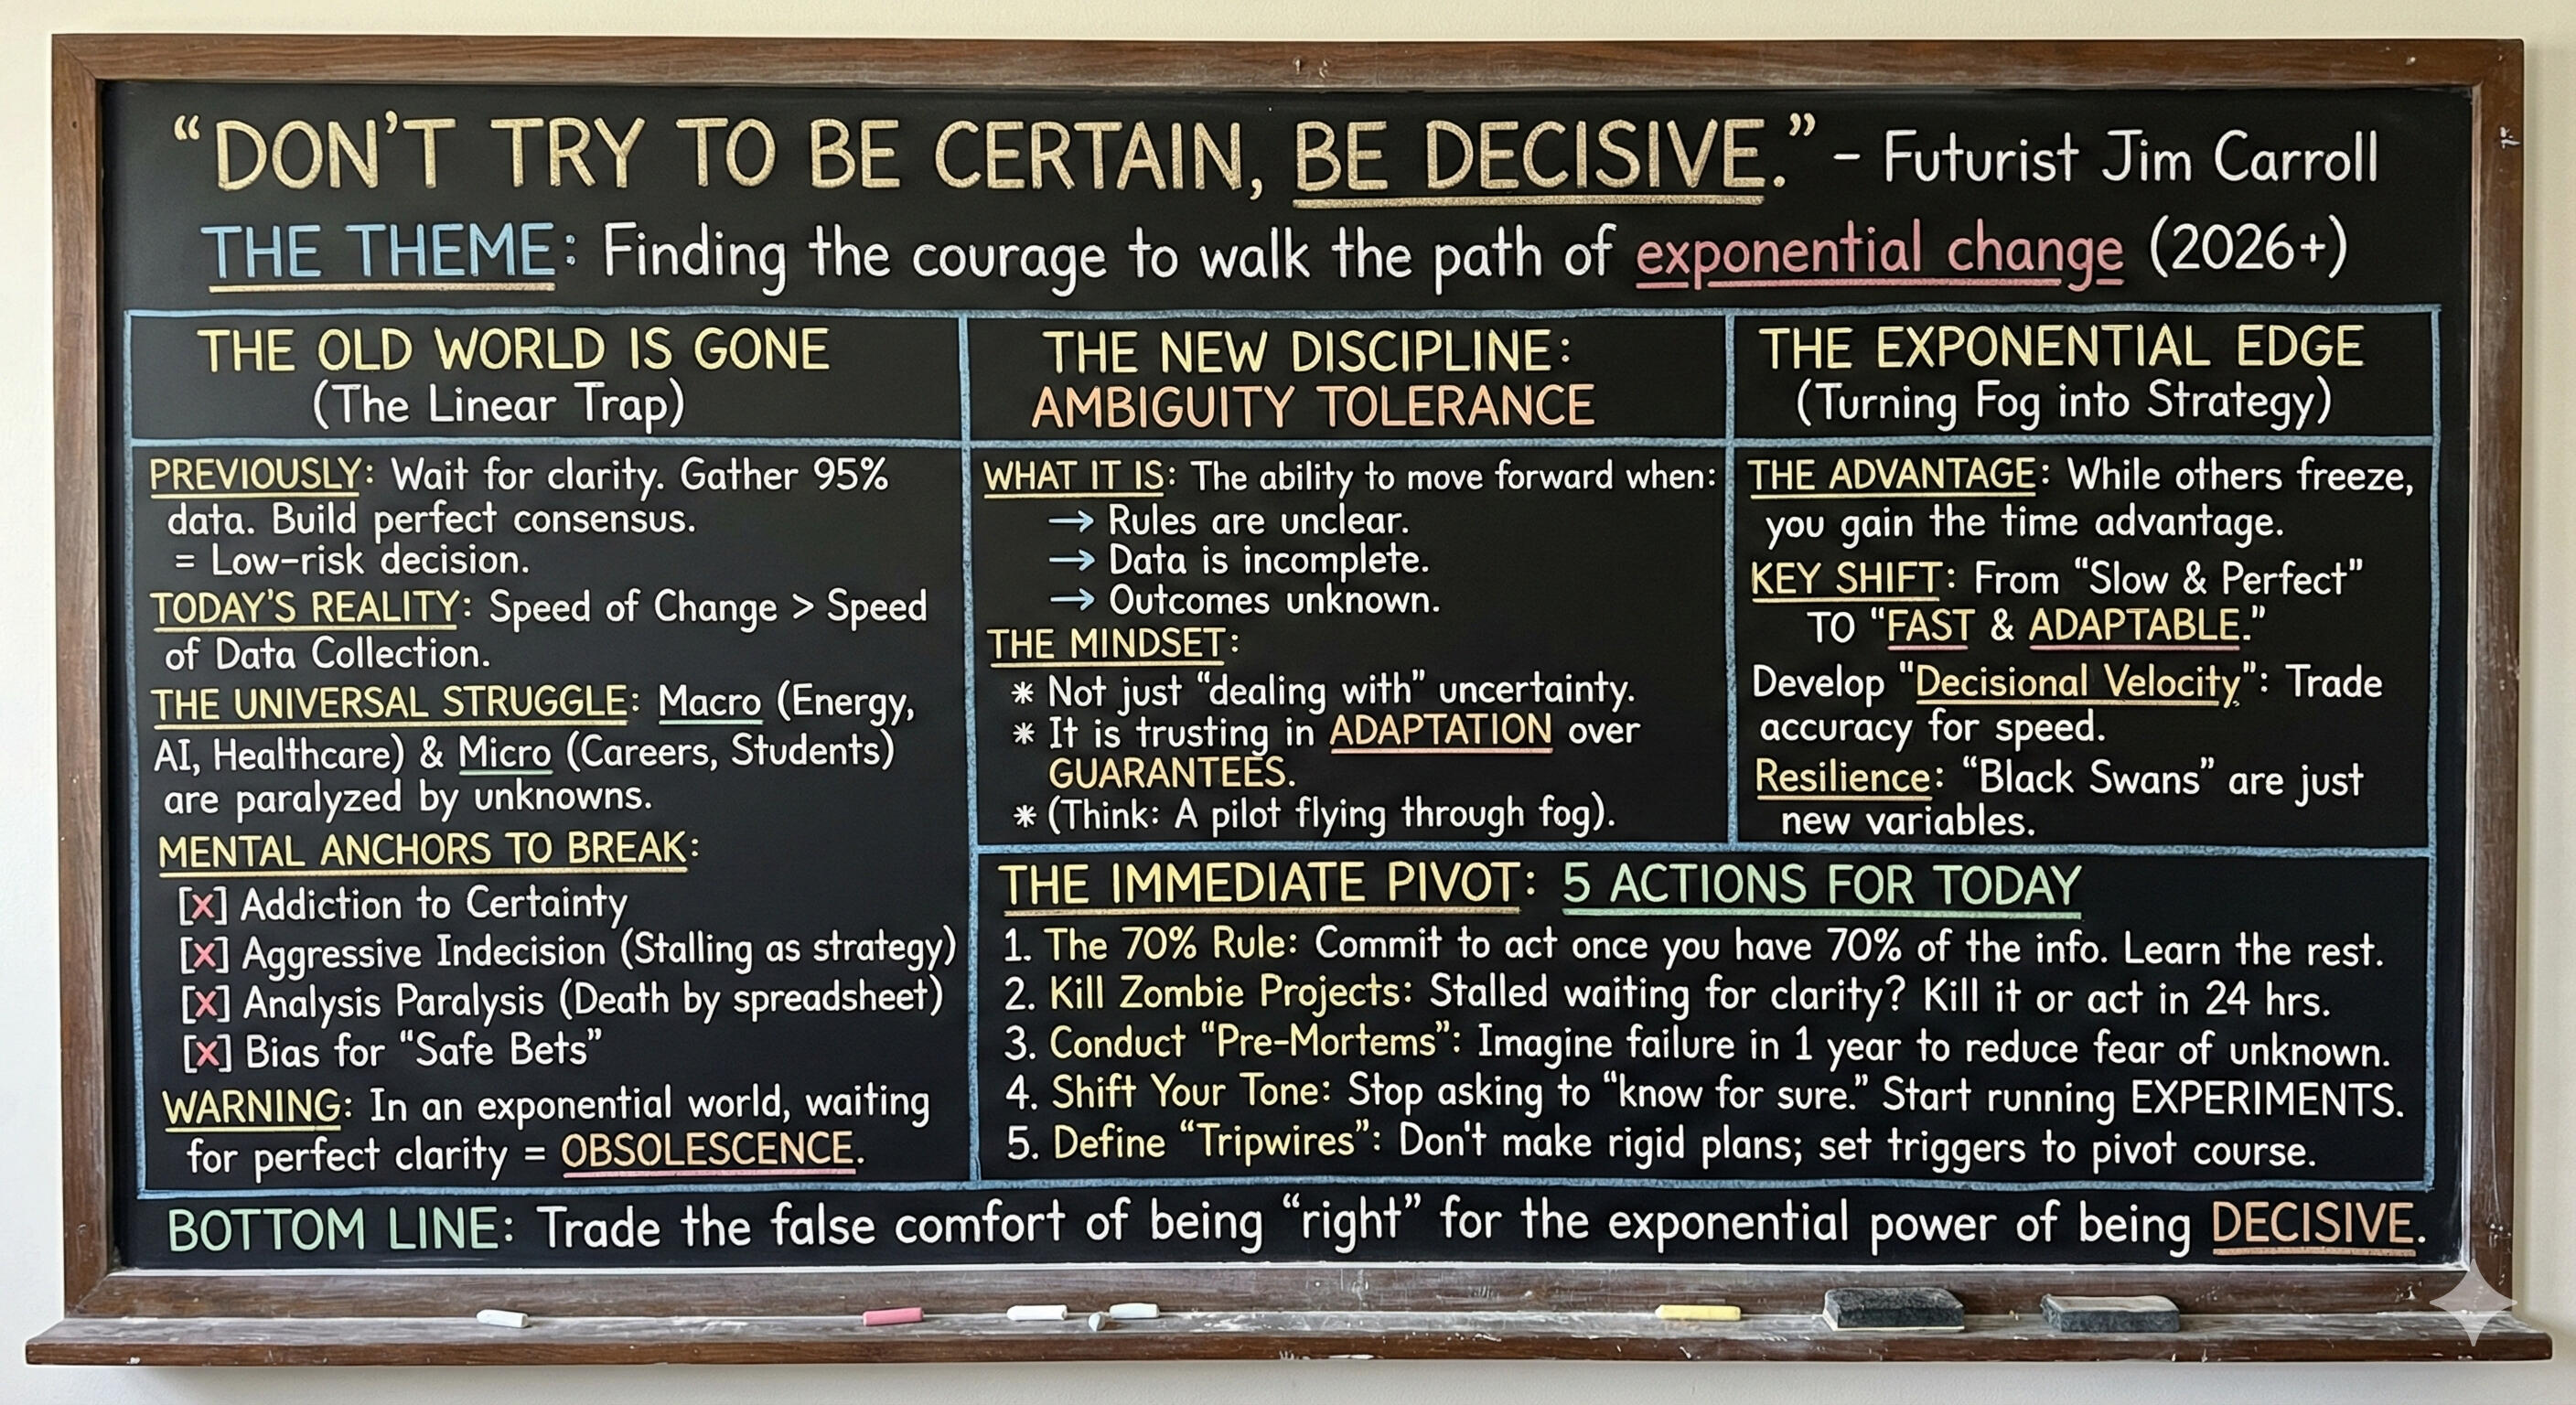 “DON'T TRY TO BE CERTAIN, BE DECISIVE.” – Futurist Jim Carroll
THE THEME: Finding the courage to walk the path of exponential change (2026+)
THE OLD WORLD IS GONE
(The Linear Trap)
PREVIOUSLY: Wait for clarity. Gather 95%
data. Build perfect consensus.
= Low-risk decision.
TODAY'S REALITY: Speed of Change > Speed
of Data Collection.
THE UNIVERSAL STRUGGLE: Macro (Energy,
AI, Healthcare) & Micro (Careers, Students)
are paralyzed by unknowns.
MENTAL ANCHORS TO BREAK:
[x] Addiction to Certainty
[x] Aggressive Indecision (Stalling as strategy)
[x] Analysis Paralysis (Death by spreadsheet)
[x] Bias for “Safe Bets”
WARNING: In an exponential world, waiting
for perfect clarity = OBSOLESCENCE.
THE NEW DISCIPLINE:
AMBIGUITY TOLERANCE
WHAT IT IS: The ability to move forward when:
→ Rules are unclear.
→ Data is incomplete.
→ Outcomes unknown.
THE MINDSET:
* Not just “dealing with” uncertainty.
* It is trusting in ADAPTATION over
GUARANTEES.
* (Think: A pilot flying through fog).
THE EXPONENTIAL EDGE
(Turning Fog into Strategy)
THE ADVANTAGE: While others freeze,
you gain the time advantage.
KEY SHIFT: From “Slow & Perfect”
TO “FAST & ADAPTABLE.”
Develop “Decisional Velocity”: Trade
accuracy for speed.
Resilience: “Black Swans” are just
new variables.
THE IMMEDIATE PIVOT: 5 ACTIONS FOR TODAY
1. The 70% Rule: Commit to act once you have 70% of the info. Learn the rest.
2. Kill Zombie Projects: Stalled waiting for clarity? Kill it or act in 24 hrs.
3. Conduct “Pre-Mortems”: Imagine failure in 1 year to reduce fear of unknown.
4. Shift Your Tone: Stop asking to “know for sure.” Start running EXPERIMENTS.
5. Define “Tripwires”: Don't make rigid plans; set triggers to pivot course.
BOTTOM LINE: Trade the false comfort of being “right” for the exponential power of being DECISIVE.